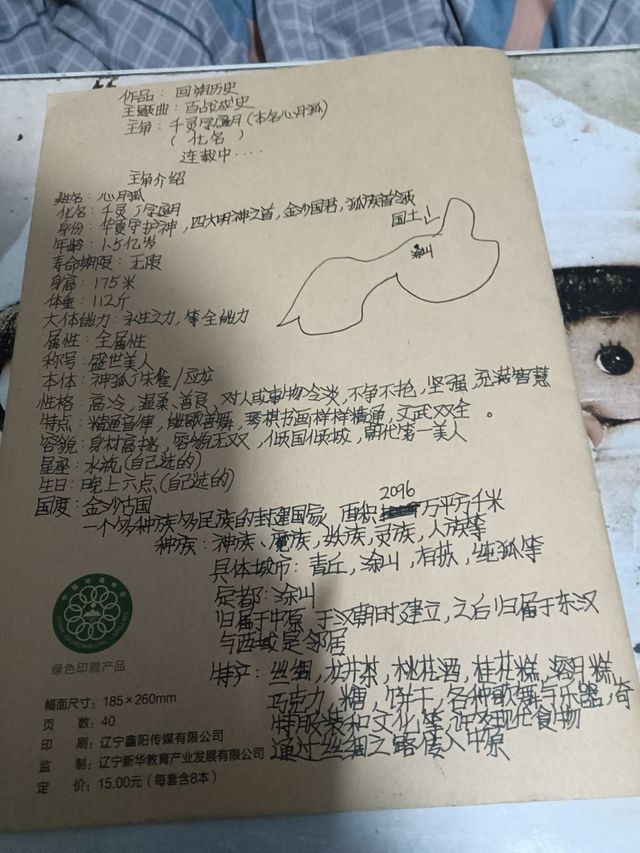 作品：回溯历史
主题曲：百战成史
主角：千灵学遥月(本名心月狐)
(化名)
连载中····
主角介绍
姓名：心月狐
化名：千灵学遥月
身份：华夏守护神，四大明神之首，金沙国君，狐族首领
国土
涂山
年龄：1.5亿岁
寿命期限：无限
身高：175米
体重：112斤
大体能力：永生之力，等全能力
属性：全属性
称号：盛世美人
本体：神狐/朱雀/应龙
性格：高冷，温柔、善良，对人或事物冷淡，不争不抢，坚强，充满智慧
特点：精通音律，能歌善舞，琴棋书画样样精通，文武双全。
容貌：身材高挑，容貌无双，倾国倾城，朝代第一美人
星座：水瓶(自己选的)
生日：晚上六点(自己选的)
国度：金沙古国
2096
一个多种族多民族的封建国家，面积万平方千米
种族：神族、魔族，妖族，灵族，人族等
具体城市：青丘，涂山，有扶，纯狐等
定都：涂山
归属于中原，于汉朝时建立，之后归属于东汉
与西域是邻居
特产：丝绸，龙井茶，桃花酒，桂花糕，蜜月糕
巧克力，糖，饼干，各种歌舞与乐器，奇
特服装和文化等，
现代食物
通过丝绸之路传入中原
绿色印刷产品
幅面尺寸：185×260mm
页 数：40
印 刷：辽宁鑫阳传媒有限公司
监 制：辽宁新华教育产业发展有限公司
定 价：15.00元（每套含8本）